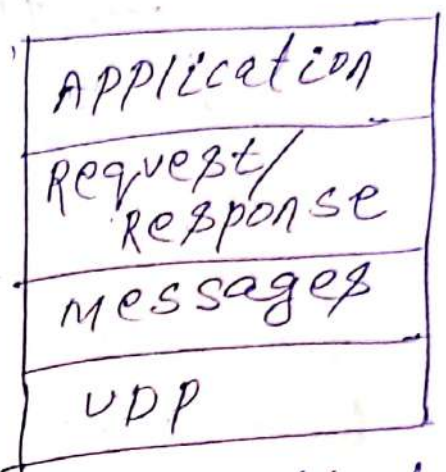 Application
Request/
Response
Messages
UDP